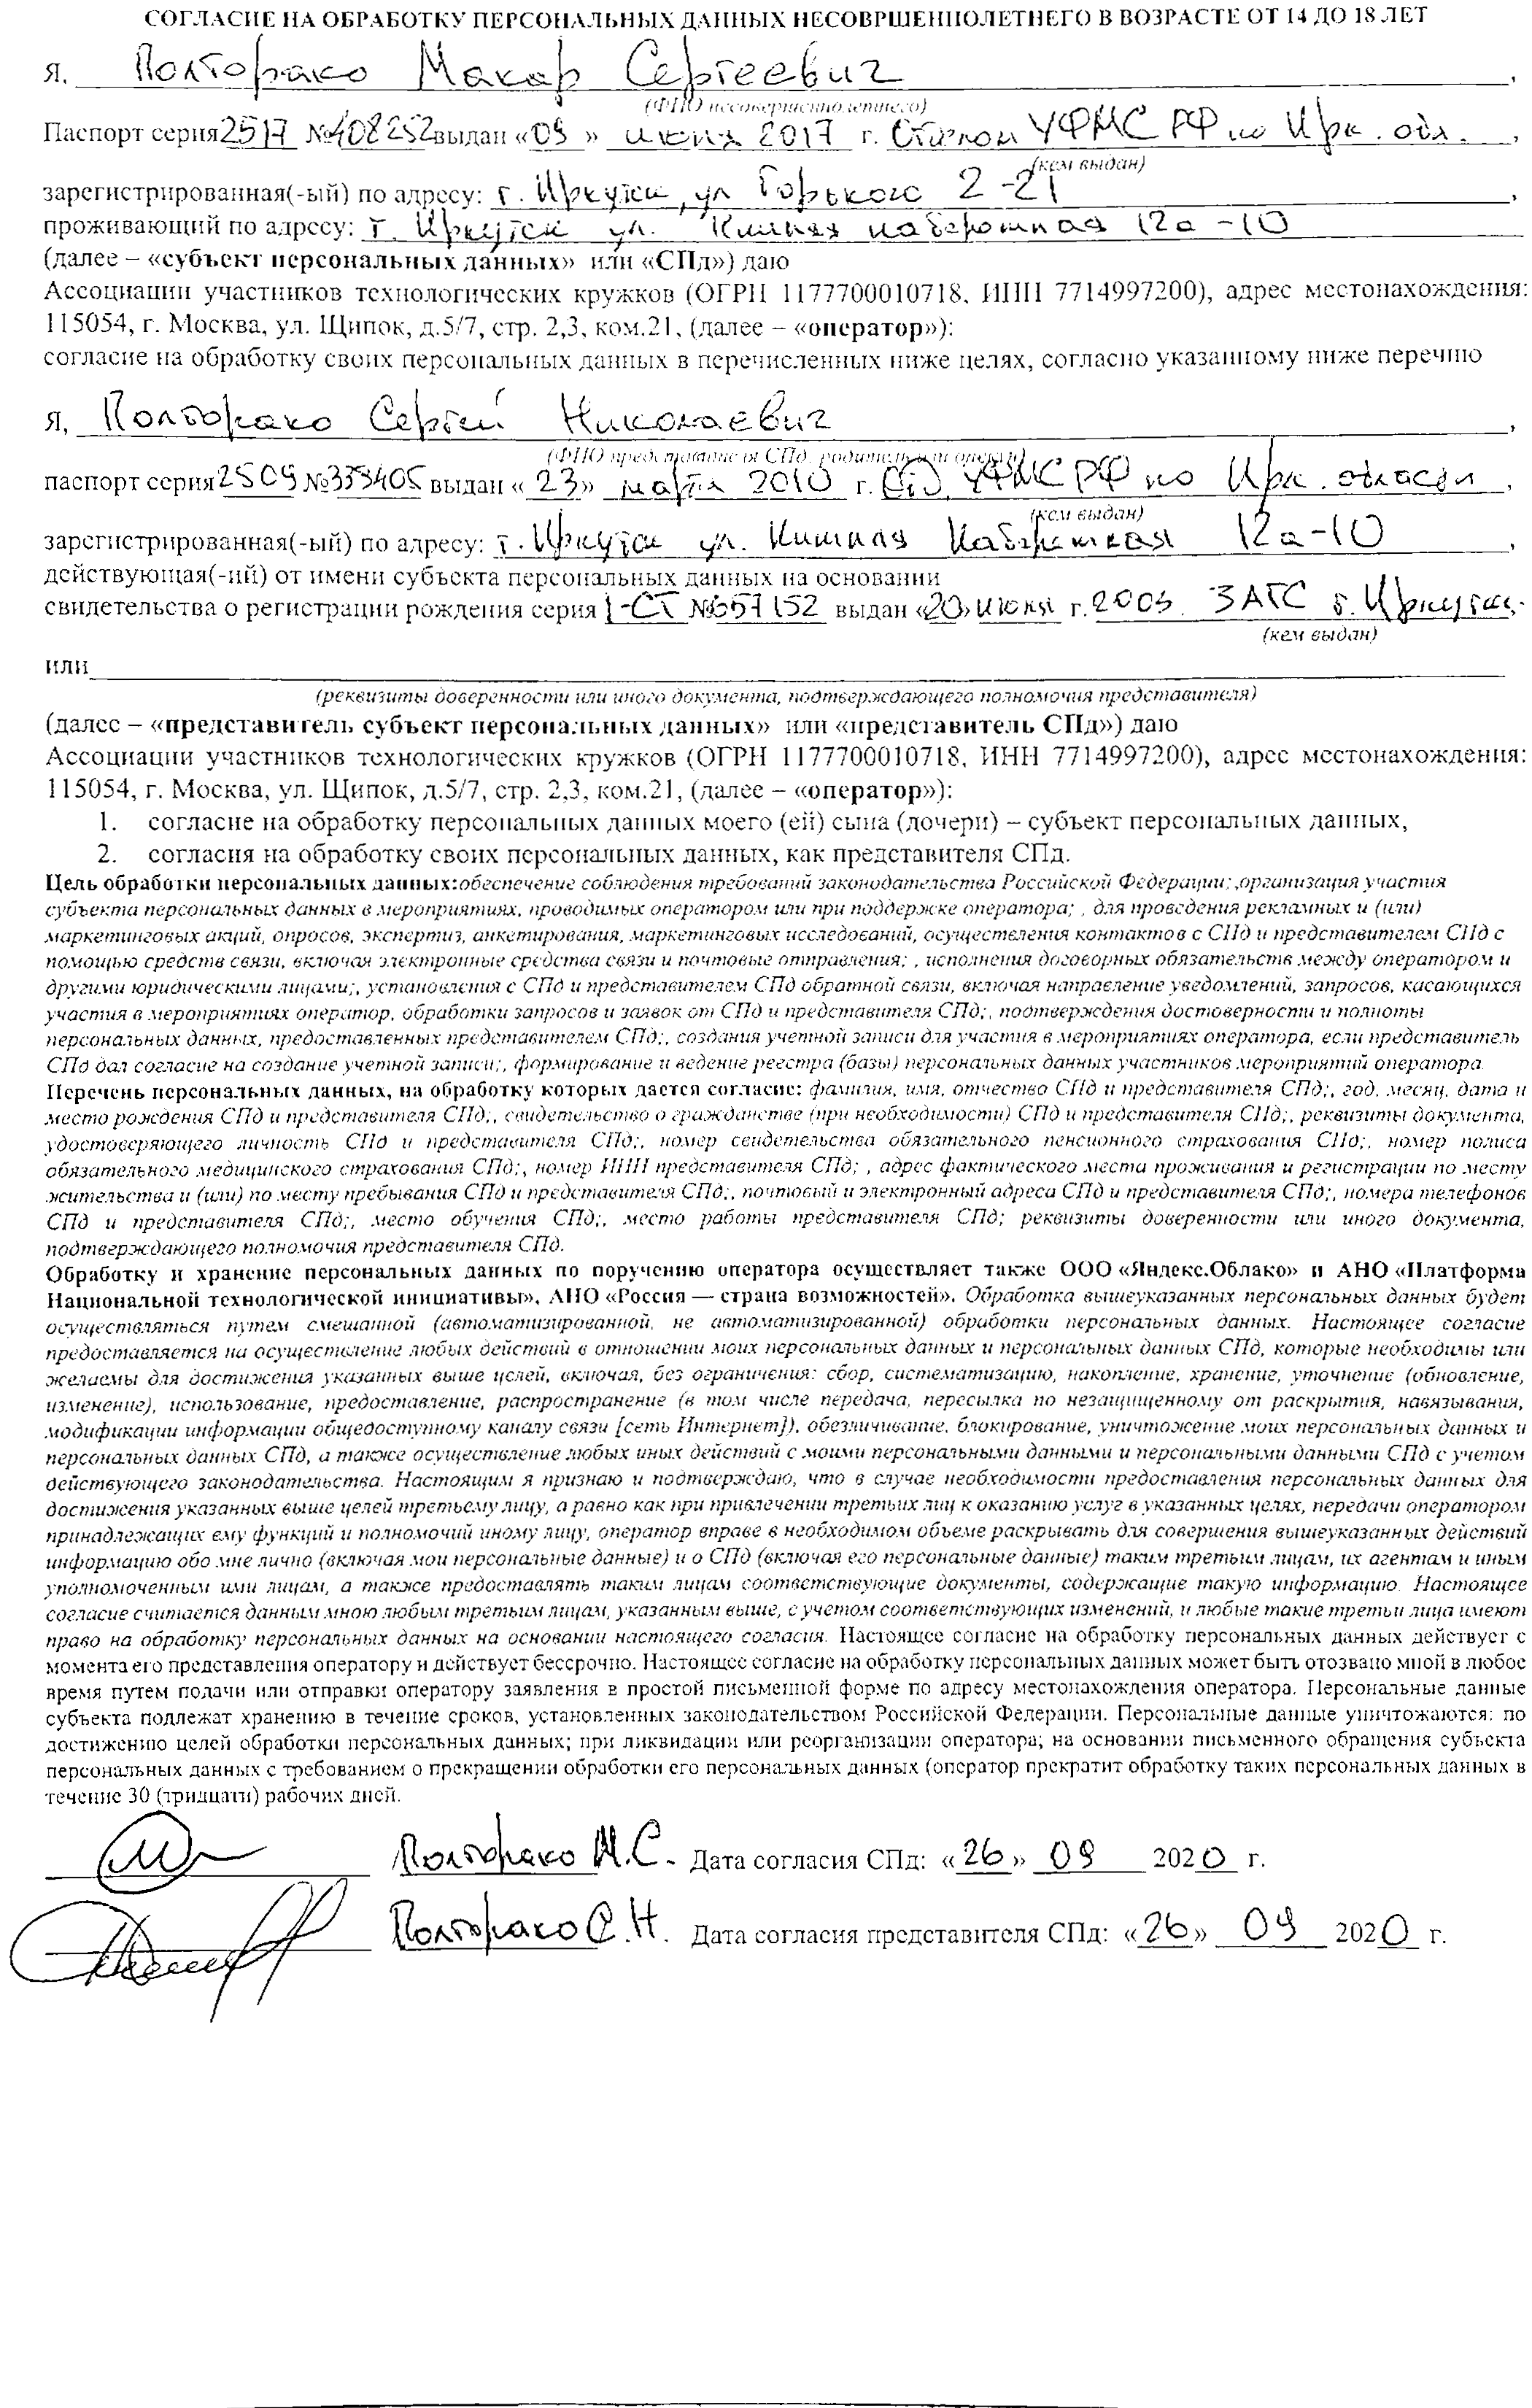 СОГЛАСИЕ НА ОБРАБОТКУ ПЕРСОНАЛЬНЫХ ДАННЫХ НЕСОВРШЕННОЛЕТНЕГО В ВОЗРАСТЕ ОТ 14 ДО 18 ЛЕТ
Я, Полторако Макар Сергеевич,
(ФИО несовершеннолетнего)
Паспорт серия 2517 №408252 выдан «09» июня 2017 г. УФМС РФ по Ирк. обл.,
(кем выдан)
зарегистрированная(-ый) по адресу: г. Иркутск, ул Горького 2-21,
проживающий по адресу: г. Иркутск ул. набережная 12а-10
(далее – «субъект персональных данных» или «СПд») даю
Ассоциации участников технологических кружков (ОГРН 1177700010718, ИНН 7714997200), адрес местонахождения:
115054, г. Москва, ул. Щипок, д.5/7, стр. 2,3, ком.21, (далее – «оператор»):
согласие на обработку своих персональных данных в перечисленных ниже целях, согласно указанному ниже перечню
Я, Полторако Сергей Николаевич,
(ФИО представителя СПд, родитель или опекун)
паспорт серия 2509 № выдан «23» марта 2010 г. УФМС РФ по Ирк. области,
(кем выдан)
зарегистрированная(-ый) по адресу: г. Иркутск ул. Набережная 12а-10,
действующая(-ий) от имени субъекта персональных данных на основании
свидетельства о регистрации рождения серия I-СТ № выдан «20» июня г. 2003. ЗАГС г. Иркутска.
(кем выдан)
или
(реквизиты доверенности или иного документа, подтверждающего полномочия представителя)
(далее – «представитель субъект персональных данных» или «представитель СПд») даю
Ассоциации участников технологических кружков (ОГРН 1177700010718, ИНН 7714997200), адрес местонахождения:
115054, г. Москва, ул. Щипок, д.5/7, стр. 2,3, ком.21, (далее – «оператор»):
1. согласие на обработку персональных данных моего (ей) сына (дочери) – субъект персональных данных,
2. согласия на обработку своих персональных данных, как представителя СПд.
Цель обработки персональных данных:обеспечение соблюдения требований законодательства Российской Федерации; ,организация участия
субъекта персональных данных в мероприятиях, проводимых оператором или при поддержке оператора; , для проведения рекламных и (или)
маркетинговых акций, опросов, экспертиз, анкетирования, маркетинговых исследований, осуществления контактов с СПд и представителем СПд с
помощью средств связи, включая электронные средства связи и почтовые отправления; , исполнения договорных обязательств между оператором и
другими юридическими лицами;, установления с СПд и представителем СПд обратной связи, включая направление уведомлений, запросов, касающихся
участия в мероприятиях оператор, обработки запросов и заявок от СПд и представителя СПд;, подтверждения достоверности и полноты
персональных данных, предоставленных представителем СПд;, создания учетной записи для участия в мероприятиях оператора, если представитель
СПд дал согласие на создание учетной записи;, формирование и ведение реестра (базы) персональных данных участников мероприятий оператора.
Перечень персональных данных, на обработку которых дается согласие: фамилия, имя, отчество СПд и представителя СПд;, год, месяц, дата и
место рождения СПд и представителя СПд;, свидетельство о гражданстве (при необходимости) СПд и представителя СПд;, реквизиты документа,
удостоверяющего личность СПд и представителя СПд;, номер свидетельства обязательного пенсионного страхования СПд;, номер полиса
обязательного медицинского страхования СПд;, номер ИНН представителя СПд; , адрес фактического места проживания и регистрации по месту
жительства и (или) по месту пребывания СПд и представителя СПд;, почтовый и электронный адреса СПд и представителя СПд;, номера телефонов
СПд и представителя СПд;, место обучения СПд;, место работы представителя СПд; реквизиты доверенности или иного документа,
подтверждающего полномочия представителя СПд.
Обработку и хранение персональных данных по поручению оператора осуществляет также ООО «Яндекс.Облако» и АНО «Платформа
Национальной технологической инициативы», АНО «Россия — страна возможностей». Обработка вышеуказанных персональных данных будет
осуществляться путем смешанной (автоматизированной, не автоматизированной) обработки персональных данных. Настоящее согласие
предоставляется на осуществление любых действий в отношении моих персональных данных и персональных данных СПд, которые необходимы или
желаемы для достижения указанных выше целей, включая, без ограничения: сбор, систематизацию, накопление, хранение, уточнение (обновление,
изменение), использование, предоставление, распространение (в том числе передача, пересылка по незащищенному от раскрытия, навязывания,
модификации информации общедоступному каналу связи [сеть Интернет]), обезличивание, блокирование, уничтожение моих персональных данных и
персональных данных СПд, а также осуществление любых иных действий с моими персональными данными и персональными данными СПд с учетом
действующего законодательства. Настоящим я признаю и подтверждаю, что в случае необходимости предоставления персональных данных для
достижения указанных выше целей третьему лицу, а равно как при привлечении третьих лиц к оказанию услуг в указанных целях, передачи оператором
принадлежащих ему функций и полномочий иному лицу, оператор вправе в необходимом объеме раскрывать для совершения вышеуказанных действий
информацию обо мне лично (включая мои персональные данные) и о СПд (включая его персональные данные) таким третьим лицам, их агентам и иным
уполномоченным ими лицам, а также предоставлять таким лицам соответствующие документы, содержащие такую информацию. Настоящее
согласие считается данным мною любым третьим лицам, указанным выше, с учетом соответствующих изменений, и любые такие третьи лица имеют
право на обработку персональных данных на основании настоящего согласия. Настоящее согласие на обработку персональных данных действует с
момента его представления оператору и действует бессрочно. Настоящее согласие на обработку персональных данных может быть отозвано мной в любое
время путем подачи или отправки оператору заявления в простой письменной форме по адресу местонахождения оператора. Персональные данные
субъекта подлежат хранению в течение сроков, установленных законодательством Российской Федерации. Персональные данные уничтожаются: по
достижению целей обработки персональных данных; при ликвидации или реорганизации оператора; на основании письменного обращения субъекта
персональных данных с требованием о прекращении обработки его персональных данных (оператор прекратит обработку таких персональных данных в
течение 30 (тридцати) рабочих дней.
Полторако М.С. Дата согласия СПд: «26» 09 2020 г.
Полторако С.Н. Дата согласия представителя СПд: «26» 09 2020 г.